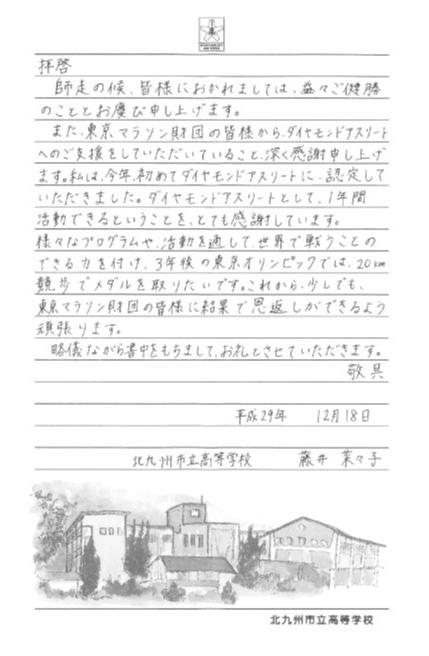 拝啓
師走の候、皆様におかれましては、益々ご健勝
のこととお慶び申し上げます。
また、東京マラソン財団の皆様から、ダイヤモンドアスリート
へのご支援をしていただいていること、深く感謝申し上げ
ます。私は、今年、初めてダイヤモンドアスリートに、認定して
いただきました。ダイヤモンドアスリートとして、1年間
活動できるということを、とても感謝しています。
様々なプログラムや、活動を通して、世界で戦うことの
できる力を付け、3年後の東京オリンピックでは、20km
競歩でメダルを取りたいです。これから、少しでも、
東京マラソン財団の皆様に結果で恩返しができるよう
頑張ります。
略儀ながら書中をもちまして、お礼とさせていただきます。
敬具
平成29年 12月18日
北九州市立高等学校 藤井 菜々子
北九州市立高等学校